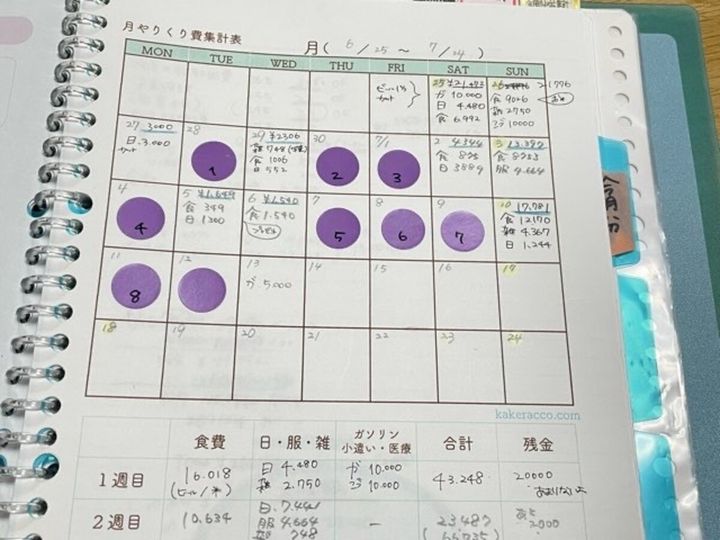 月やりくり費集計表
月( 6/25 ~ 7/24 )
MON TUE WED THU FRI SAT SUN
25 ¥21,472
ガ 10.000
日 4.480
食 6.992
26
食 9026
雑 2750
こづ 10000
27 3000
日 3.000
28
1
29 ¥2306
雑 748
食 1006
日 552
30
2
7/1
3
2 4344
食 825
日 3889
3 13.392
食 8253
服 4.664
4
4
5 ¥1,649
食 349
日 1300
6 ¥1,540
食 1.540
7
5
8
6
9
7
10 17,781
食 12170
雑 4.367
日 1,244
11
8
12
13
ガ 5000
14
15
16
17
18
19
20
21
22
23
24
kakeracco.com
食費 日・服・雑 ガソリン 小遣い・医療 合計 残金
1週目 16.018 日 4.480 雑 2.750 ガ 10.000 こづ 10.000 43.248 20000
2週目 10.634 日 7.441 服 4.664 雑 748 - 23.487 2000